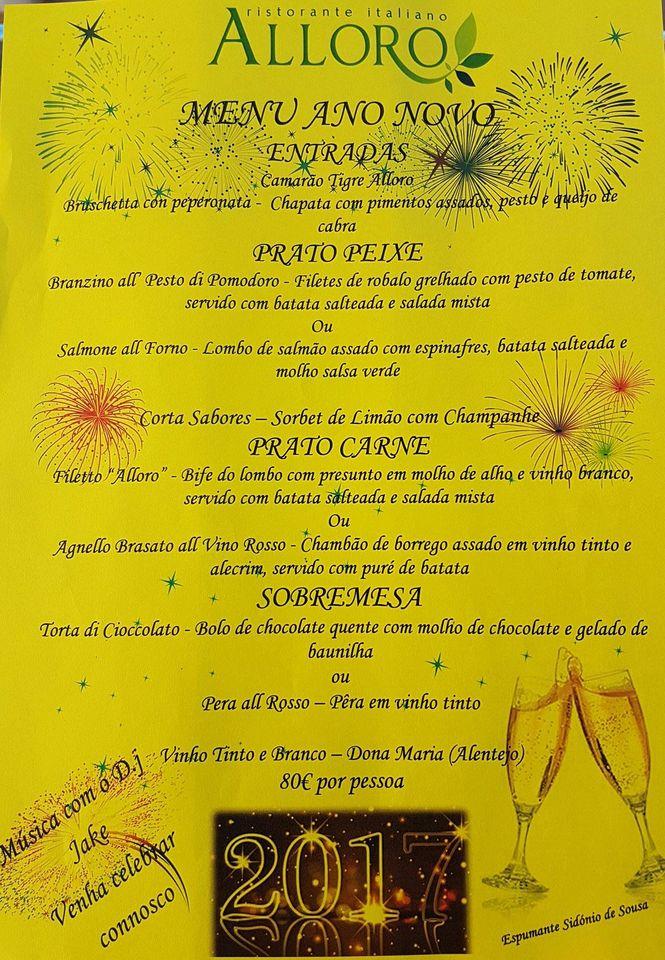 ristorante italiano
ALLORO
MENU ANO NOVO
ENTRADAS
Camarão Tigre Alloro
Bruschetta con peperonata - Chapata com pimentos assados, pesto e queijo de
cabra
PRATO PEIXE
Branzino all' Pesto di Pomodoro - Filetes de robalo grelhado com pesto de tomate,
servido com batata salteada e salada mista
Ou
Salmone all Forno - Lombo de salmão assado com espinafres, batata salteada e
molho salsa verde
Corta Sabores – Sorbet de Limão com Champanhe
PRATO CARNE
Filetto "Alloro" - Bife do lombo com presunto em molho de alho e vinho branco,
servido com batata salteada e salada mista
Ou
Agnello Brasato all Vino Rosso - Chambão de borrego assado em vinho tinto e
alecrim, servido com puré de batata
SOBREMESA
Torta di Cioccolato - Bolo de chocolate quente com molho de chocolate e gelado de
baunilha
ou
Pera all Rosso – Pêra em vinho tinto
Vinho Tinto e Branco – Dona Maria (Alentejo)
80€ por pessoa
Música com o D.j
Jake
Venha celebrar
connosco
2017
Espumante Sidónio de Sousa